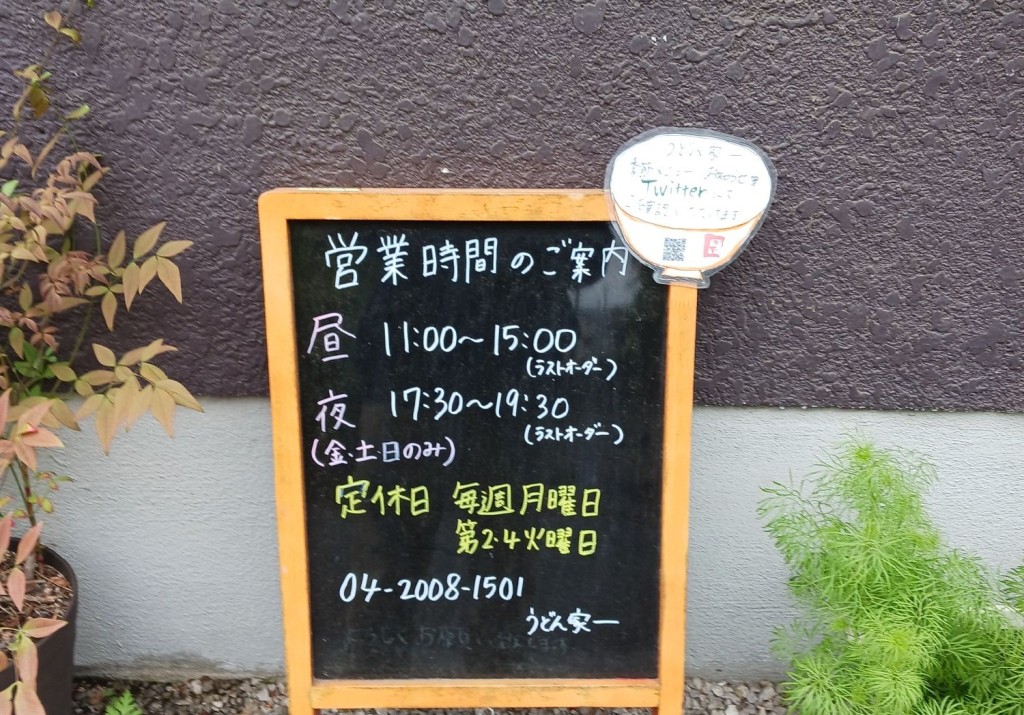 営業時間のご案内
昼 11:00～15:00
(ラストオーダー)
夜 17:30～19:30
(ラストオーダー)
(金・土・日のみ)
定休日 毎週月曜日
第2・4火曜日
04-2008-1501
うどん家一
よろしくお願いいたします
うどん家一
Twitterにて